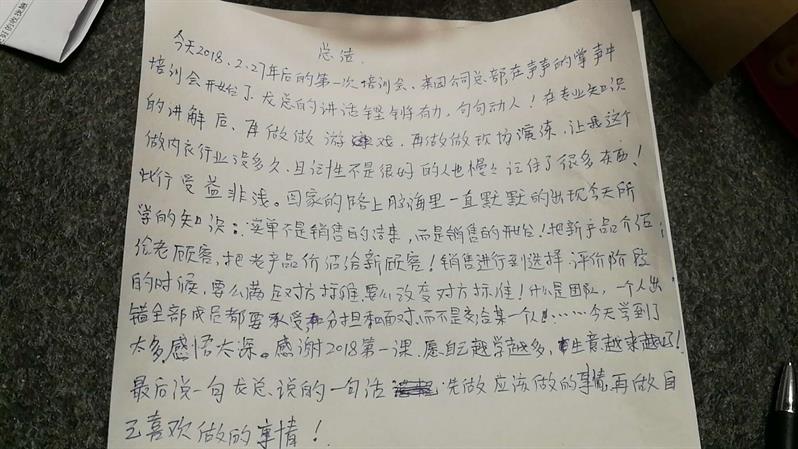 总结
今天2018.2.27年后的第一次培训会、莱因公司总部在声声的掌声中
培训会开始了、龙总的讲话铿锵有力，句句动人！在专业知识
的讲解后、再做做游戏、再做做现场演练、让我这个
做内衣行业没多久、且记性不是很好的人也慢慢记住了很多东西！
此行受益非浅。回家的路上脑海里一直默默的出现今天所
学的知识：买单不是销售的结束，而是销售的开始！把新产品介绍
给老顾客，把老产品介绍给新顾客！销售进行到选择评价阶段
的时候，要么满足对方标准，要么改变对方标准！什么是团队，一个人出
错全部成员都要承受和分担和面对，而不是交给某一个人！……今天学到了
太多，感悟太深。感谢2018第一课，愿自己越学越多，生意越来越好！
最后说一句龙总说的一句话：先做应该做的事情，再做自
己喜欢做的事情！